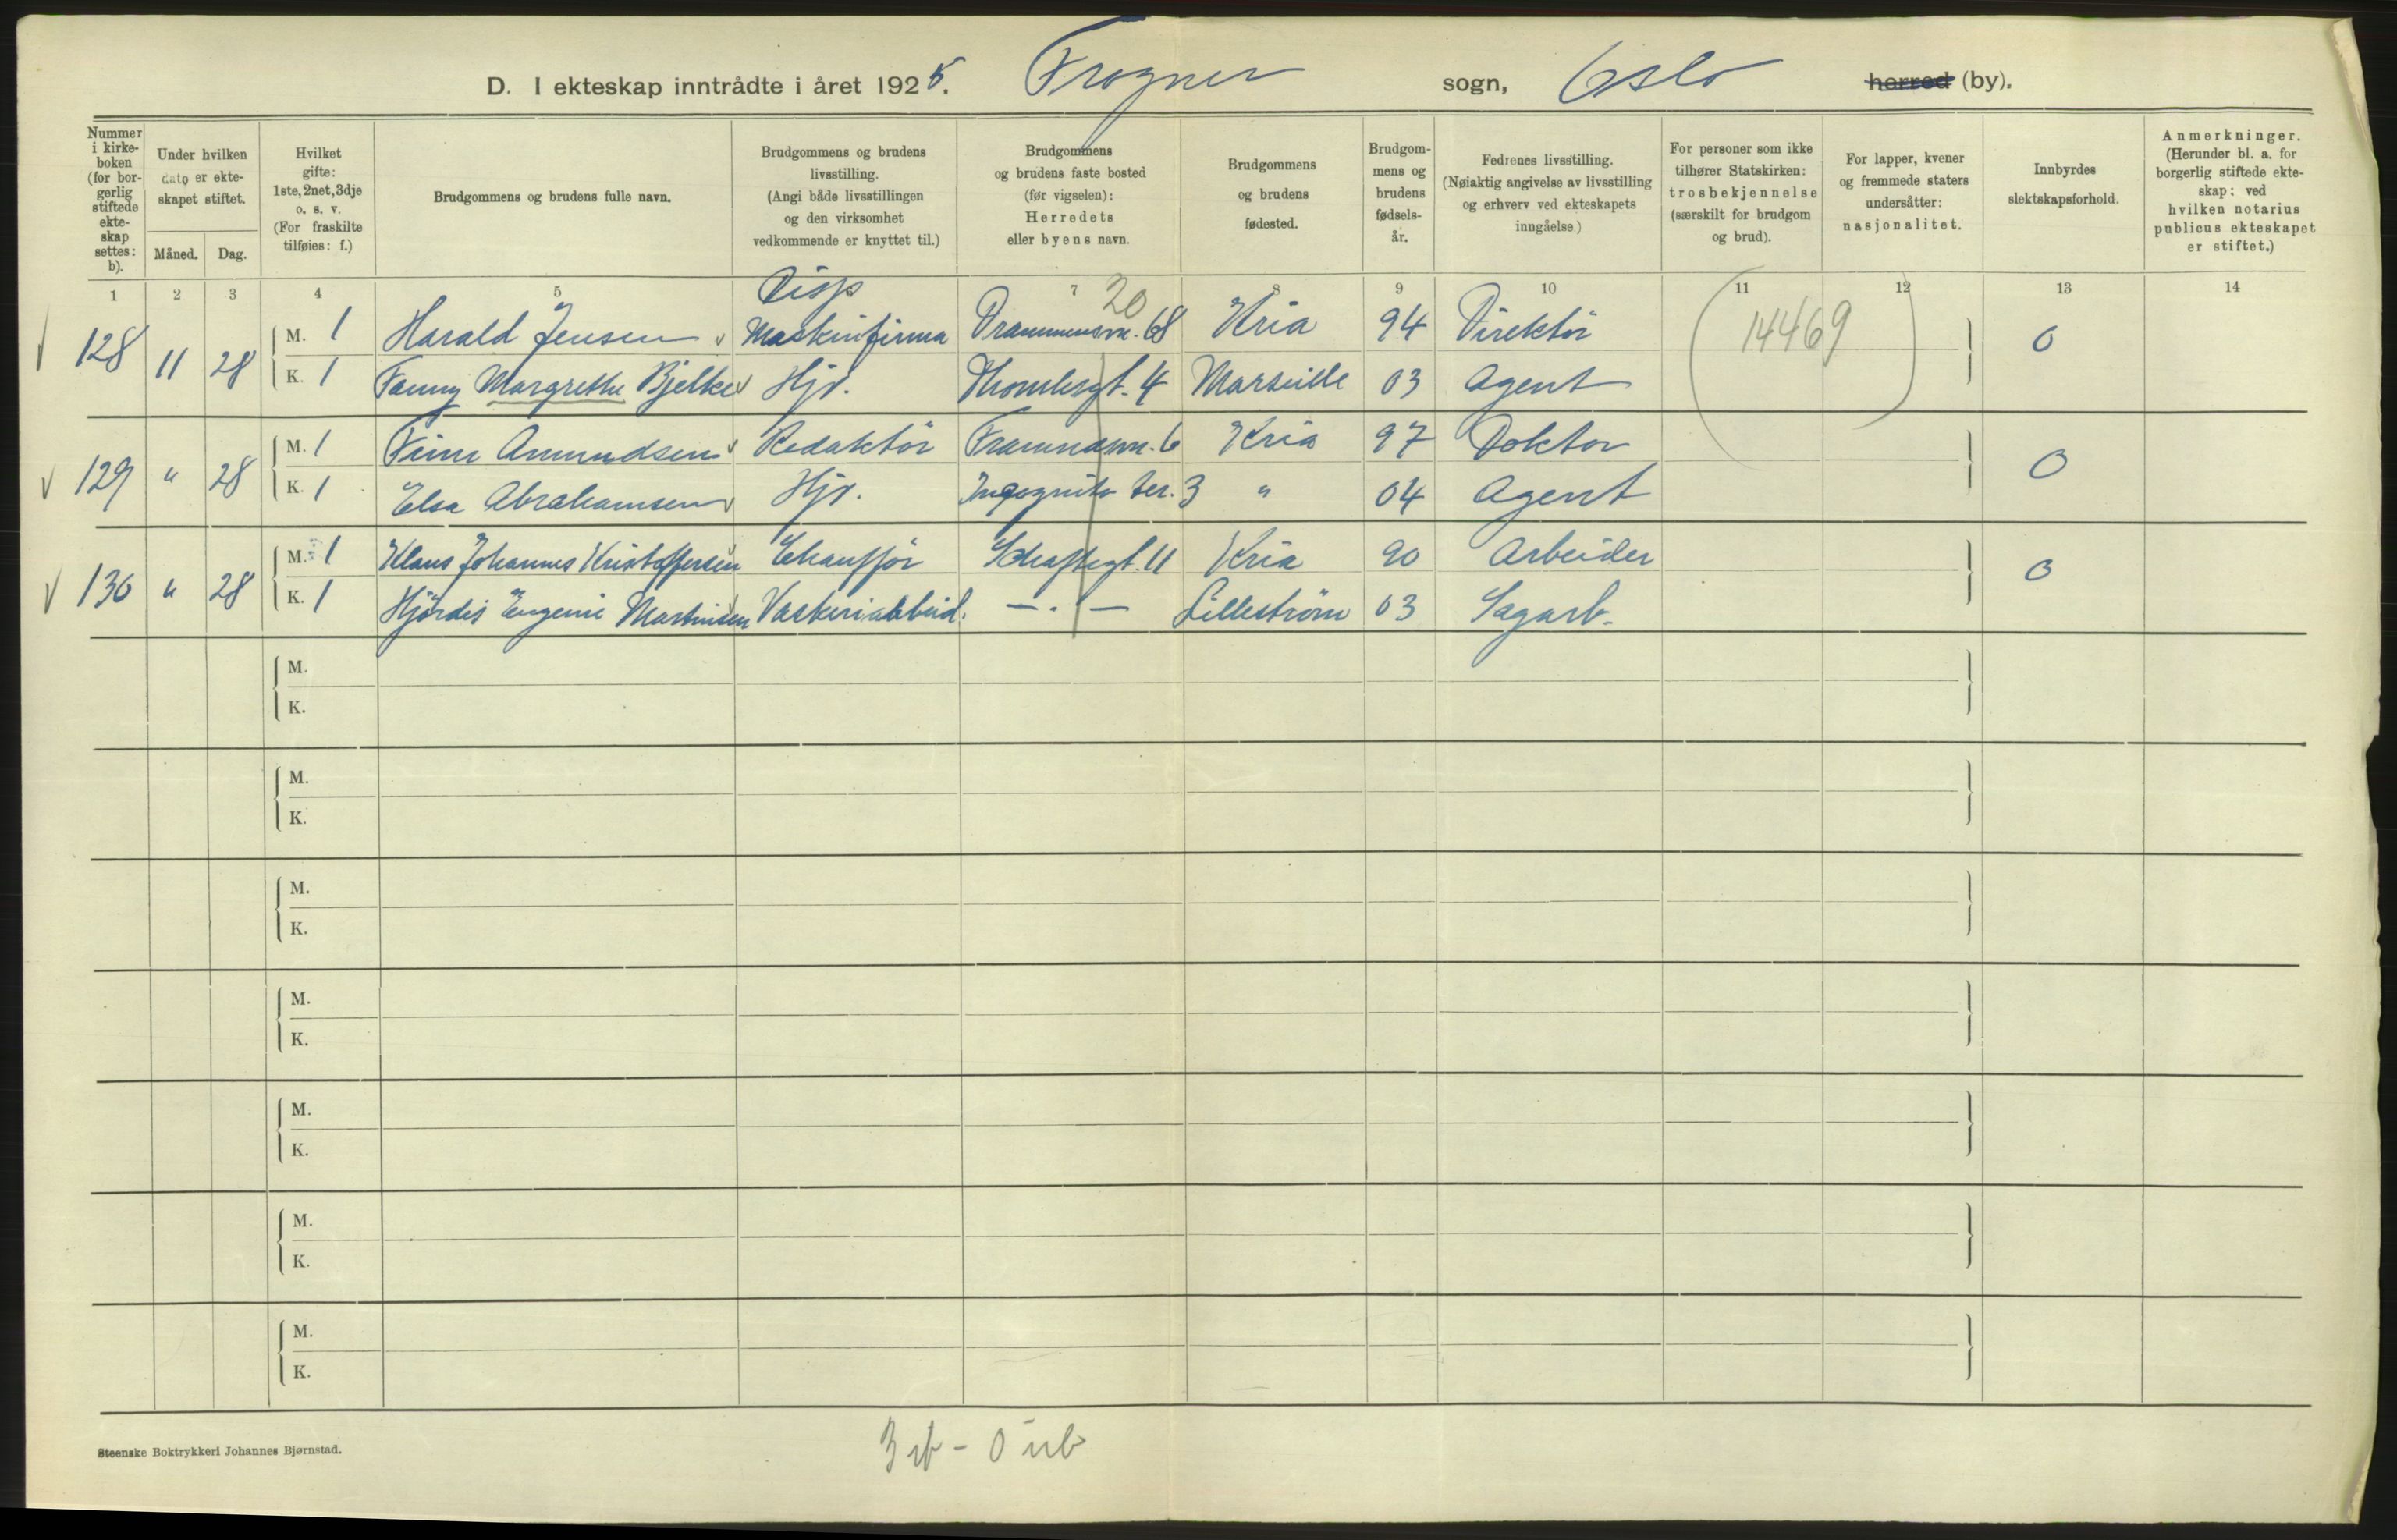 D. I ekteskap inntrådte i året 1925. Frogner sogn, Oslo herred (by).
Nummer i kirke-boken (for bor-gerlig stiftede ekte-skap settes: b).
Under hvilken dato er ekte-skapet stiftet.
Måned. Dag.
Hvilket gifte: 1ste, 2net, 3dje o. s. v. (For fraskilte tilføies: f.)
Brudgommens og brudens fulle navn.
Brudgommens og brudens livsstilling. (Angi både livsstillingen og den virksomhet vedkommende er knyttet til.)
Brudgommens og brudens faste bosted (før vigselen): Herredets eller byens navn.
Brudgommens og brudens fødested.
Brudgom-mens og brudens fødsels-år.
Fedrenes livsstilling. (Nøiaktig angivelse av livsstilling og erhverv ved ekteskapets inngåelse.)
For personer som ikke tilhører Statskirken: trosbekjennelse (særskilt for brudgom og brud).
For lapper, kvener og fremmede staters undersåtter: nasjonalitet.
Innbyrdes slektskapsforhold.
Anmerkninger. (Herunder bl. a. for borgerlig stiftede ekte-skap: ved hvilken notarius publicus ekteskapet er stiftet.)
1 2 3 4 5 7 8 9 10 11 12 13 14
Disp 20
128 11 28 M. 1 Harald Jensen Maskinfirma Drammensvn. 68 Kria 94 Direktör 14469 0
K. 1 Fanny Margrethe Bjelke Hjv. Thomlesgt. 4 Marseille 03 Agent
129 " 28 M. 1 Finn Amundsen Redaktör Framnæsvn. 6 Kria 97 Doktor 0
K. 1 Elsa Abrahamsen Hjv. Incognito ter. 3 " 04 Agent
130 " 28 M. 1 Klaus Johannes Kristoffersen Chaufför Schaftegt. 11 Kria 90 Arbeider 0
K. 1 Hjördis Eugenie Martinsen Vaskeriarbeid. — " — Lilleström 03 Sagarb.
M.
K.
M.
K.
M.
K.
M.
K.
M.
K.
M.
K.
M.
K.
3 rb - 0 ub
Steenske Boktrykkeri Johannes Bjørnstad.